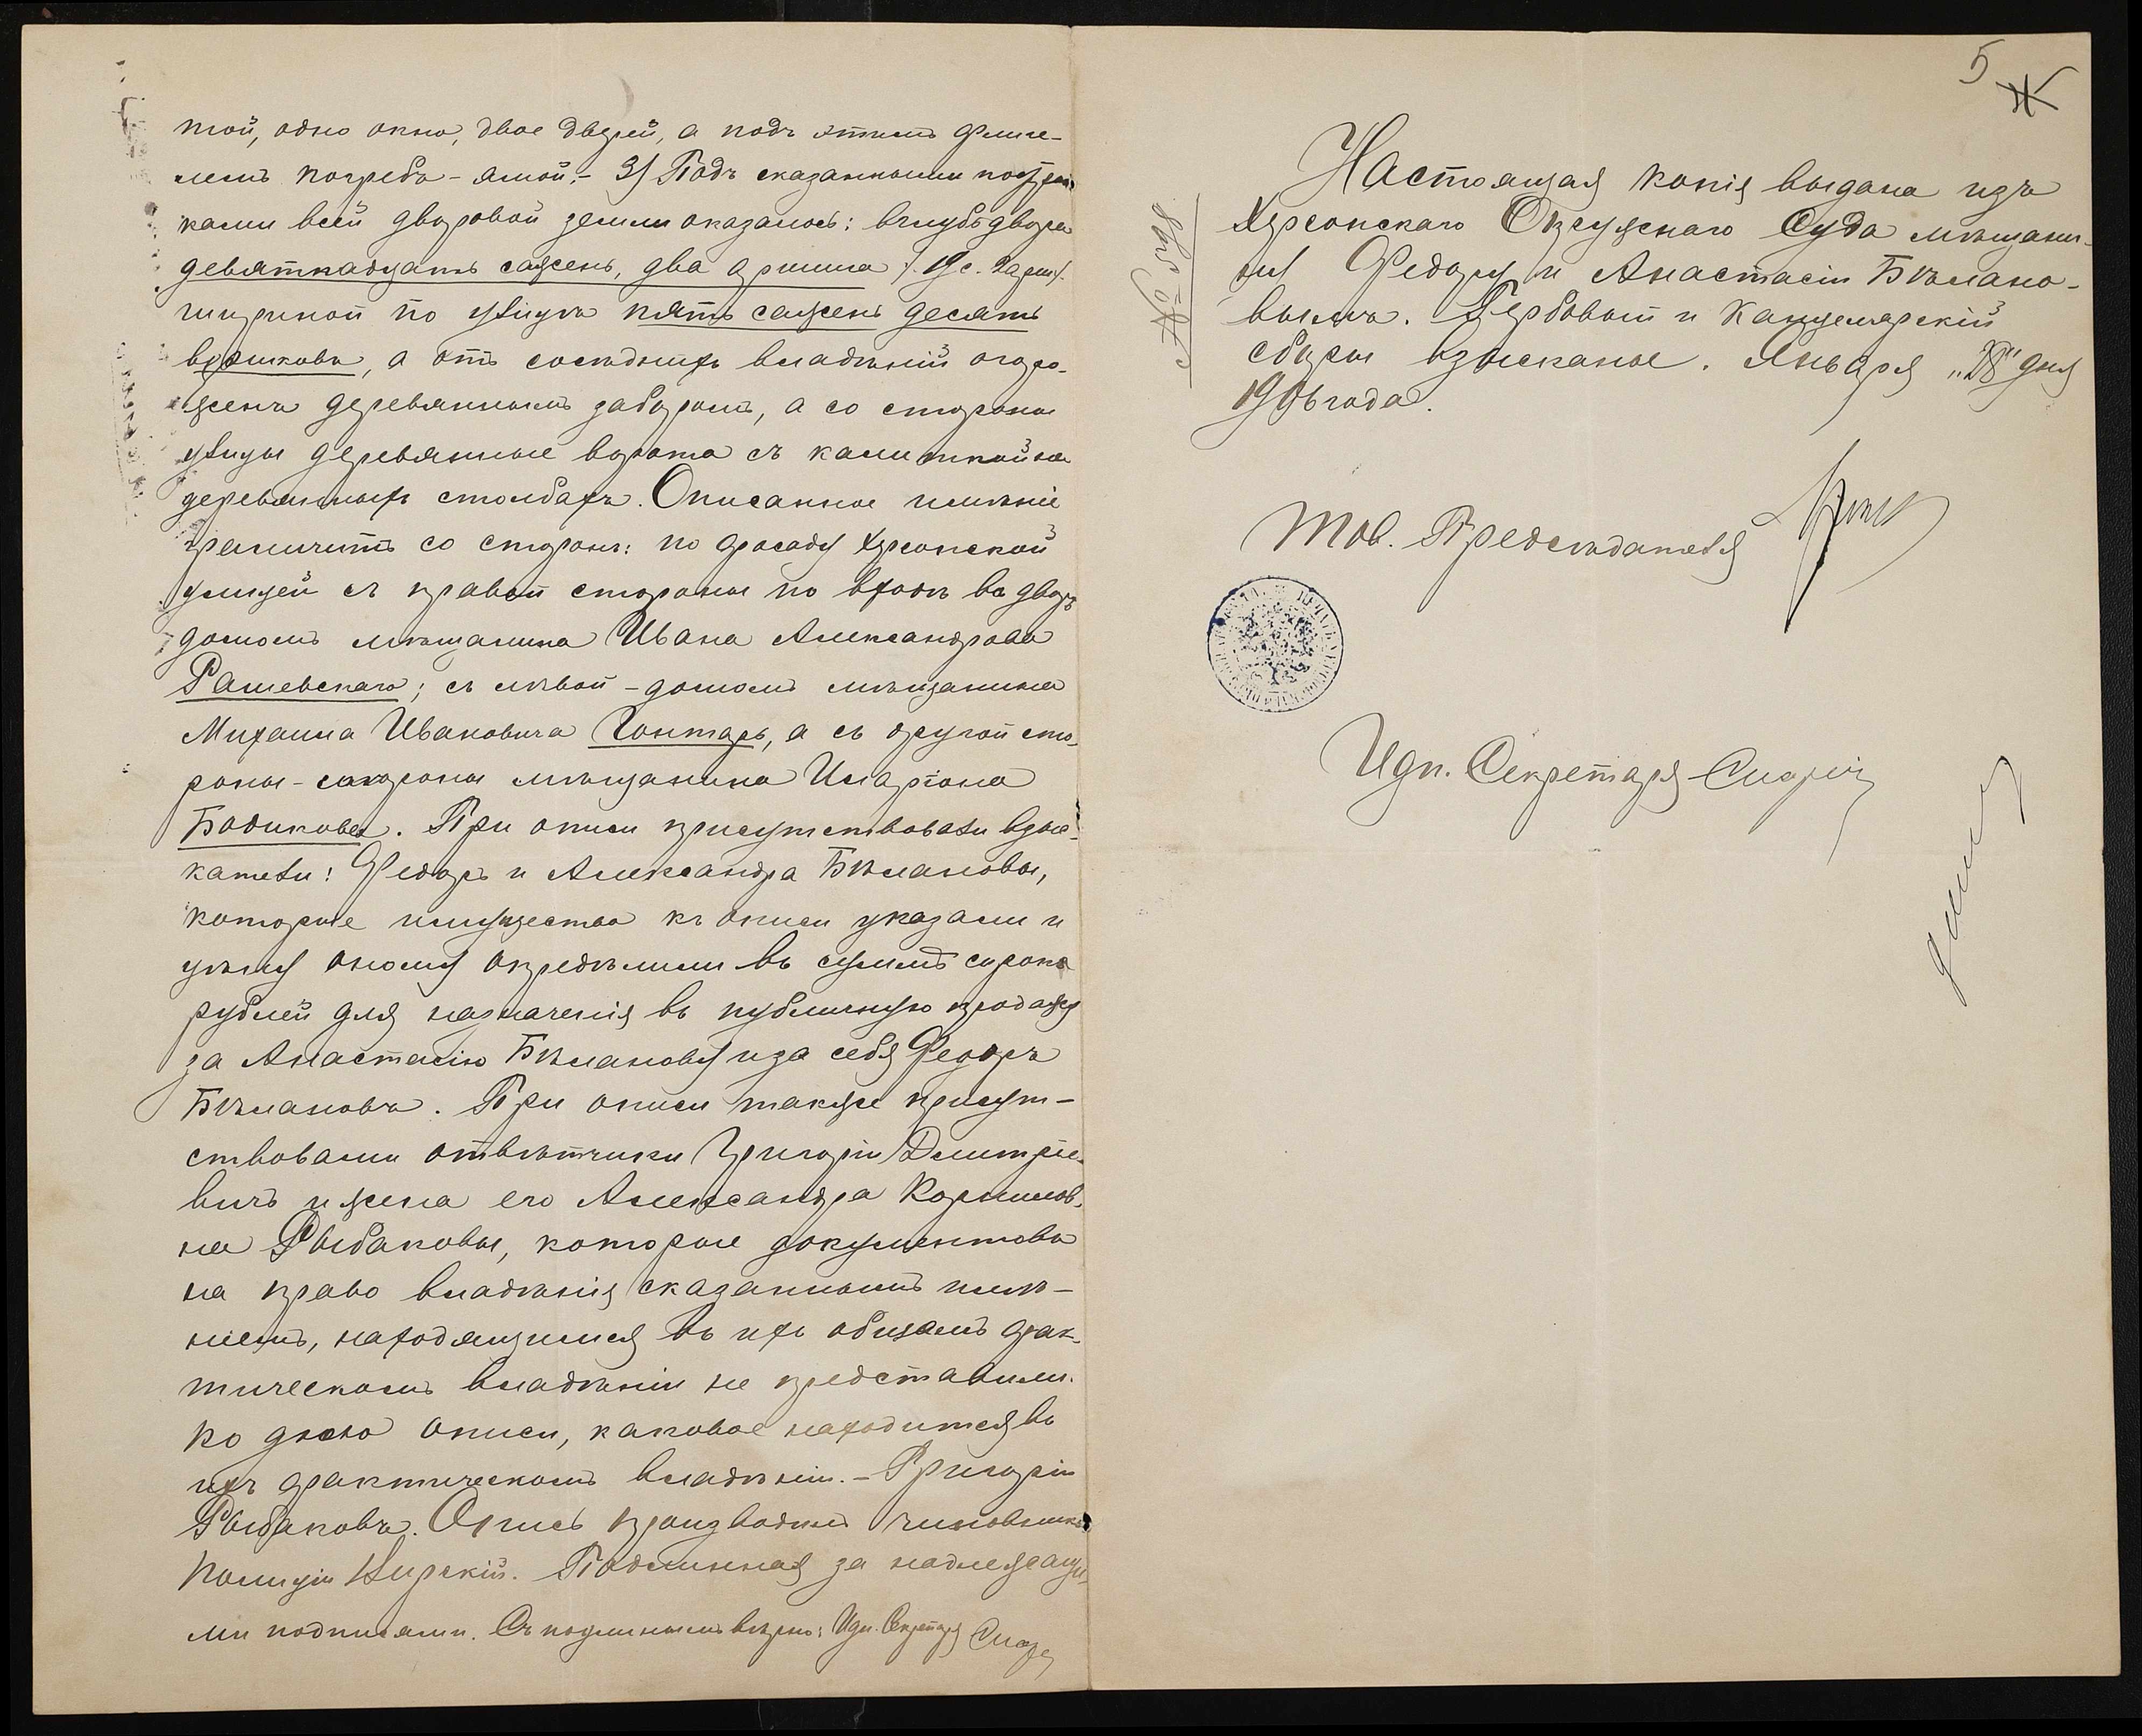 той, одно окно, двое дверей, а подъ этимъ флиге-
лемъ погребъ-ямой.- 3) Подъ сказанными построй-
ками всей дворовой земли оказалось: вглубь двора
девятнадцать сажень, два аршина /.19 с. 2 арш./.
шириной по улицѣ пять сажень десять
вершковъ, а отъ сосѣднихъ владѣній огоро-
женъ деревяннымъ заборомъ, а со стороны
улицы деревянные ворота съ калиткой на
деревянныхъ столбахъ. Описанное имѣніе
граничитъ со сторонъ: по фасаду Херсонской
улицей съ правой стороны по входѣ во дворъ
домомъ мѣщанина Ивана Александрова
Рашевскаго; съ лѣвой - домомъ мѣщанина
Михаила Ивановича Гонтарь, а съ другой сто-
роны - мѣщанина Иларіона
Бодикова. При описи присутствовали взыс-
катели: Федоръ и Александра Бѣлановы,
которые имущество къ описи указали и
цѣну оному опредѣлили въ суммѣ сорокъ
рублей для назначенія въ публичную продажу
за Анастасію Бѣланову и за себя Федоръ
Бѣлановъ. При описи также присут-
ствовали отвѣтчики Григорій Дмитріе-
вичъ и жена его Александра Корнилов-
на Рыбаковы, которые документовъ
на право владѣнія сказаннымъ имѣ-
ніемъ, находящимся въ ихъ общемъ фак-
тическомъ владѣніи не представили.
ко дню описи, каковое находится въ
ихъ фактическомъ владѣніи. - Григорій
Рыбаковъ. Опись производилъ чиновникъ
полиціи Кирскій. Подлинная за надлежащи-
ми подписями. Съ подлиннымъ вѣрно: Идп. Секретаря
5
Настоящая копія выдана изъ
Херсонскаго Окружнаго Суда мѣщани-
ну Федору и Анастасіи Бѣлано-
вымъ. Гербовый и Канцелярскій
сборы взысканые. Января „28" дня
1906 года.
Тов. Предсѣдателя
Идп. Секретаря